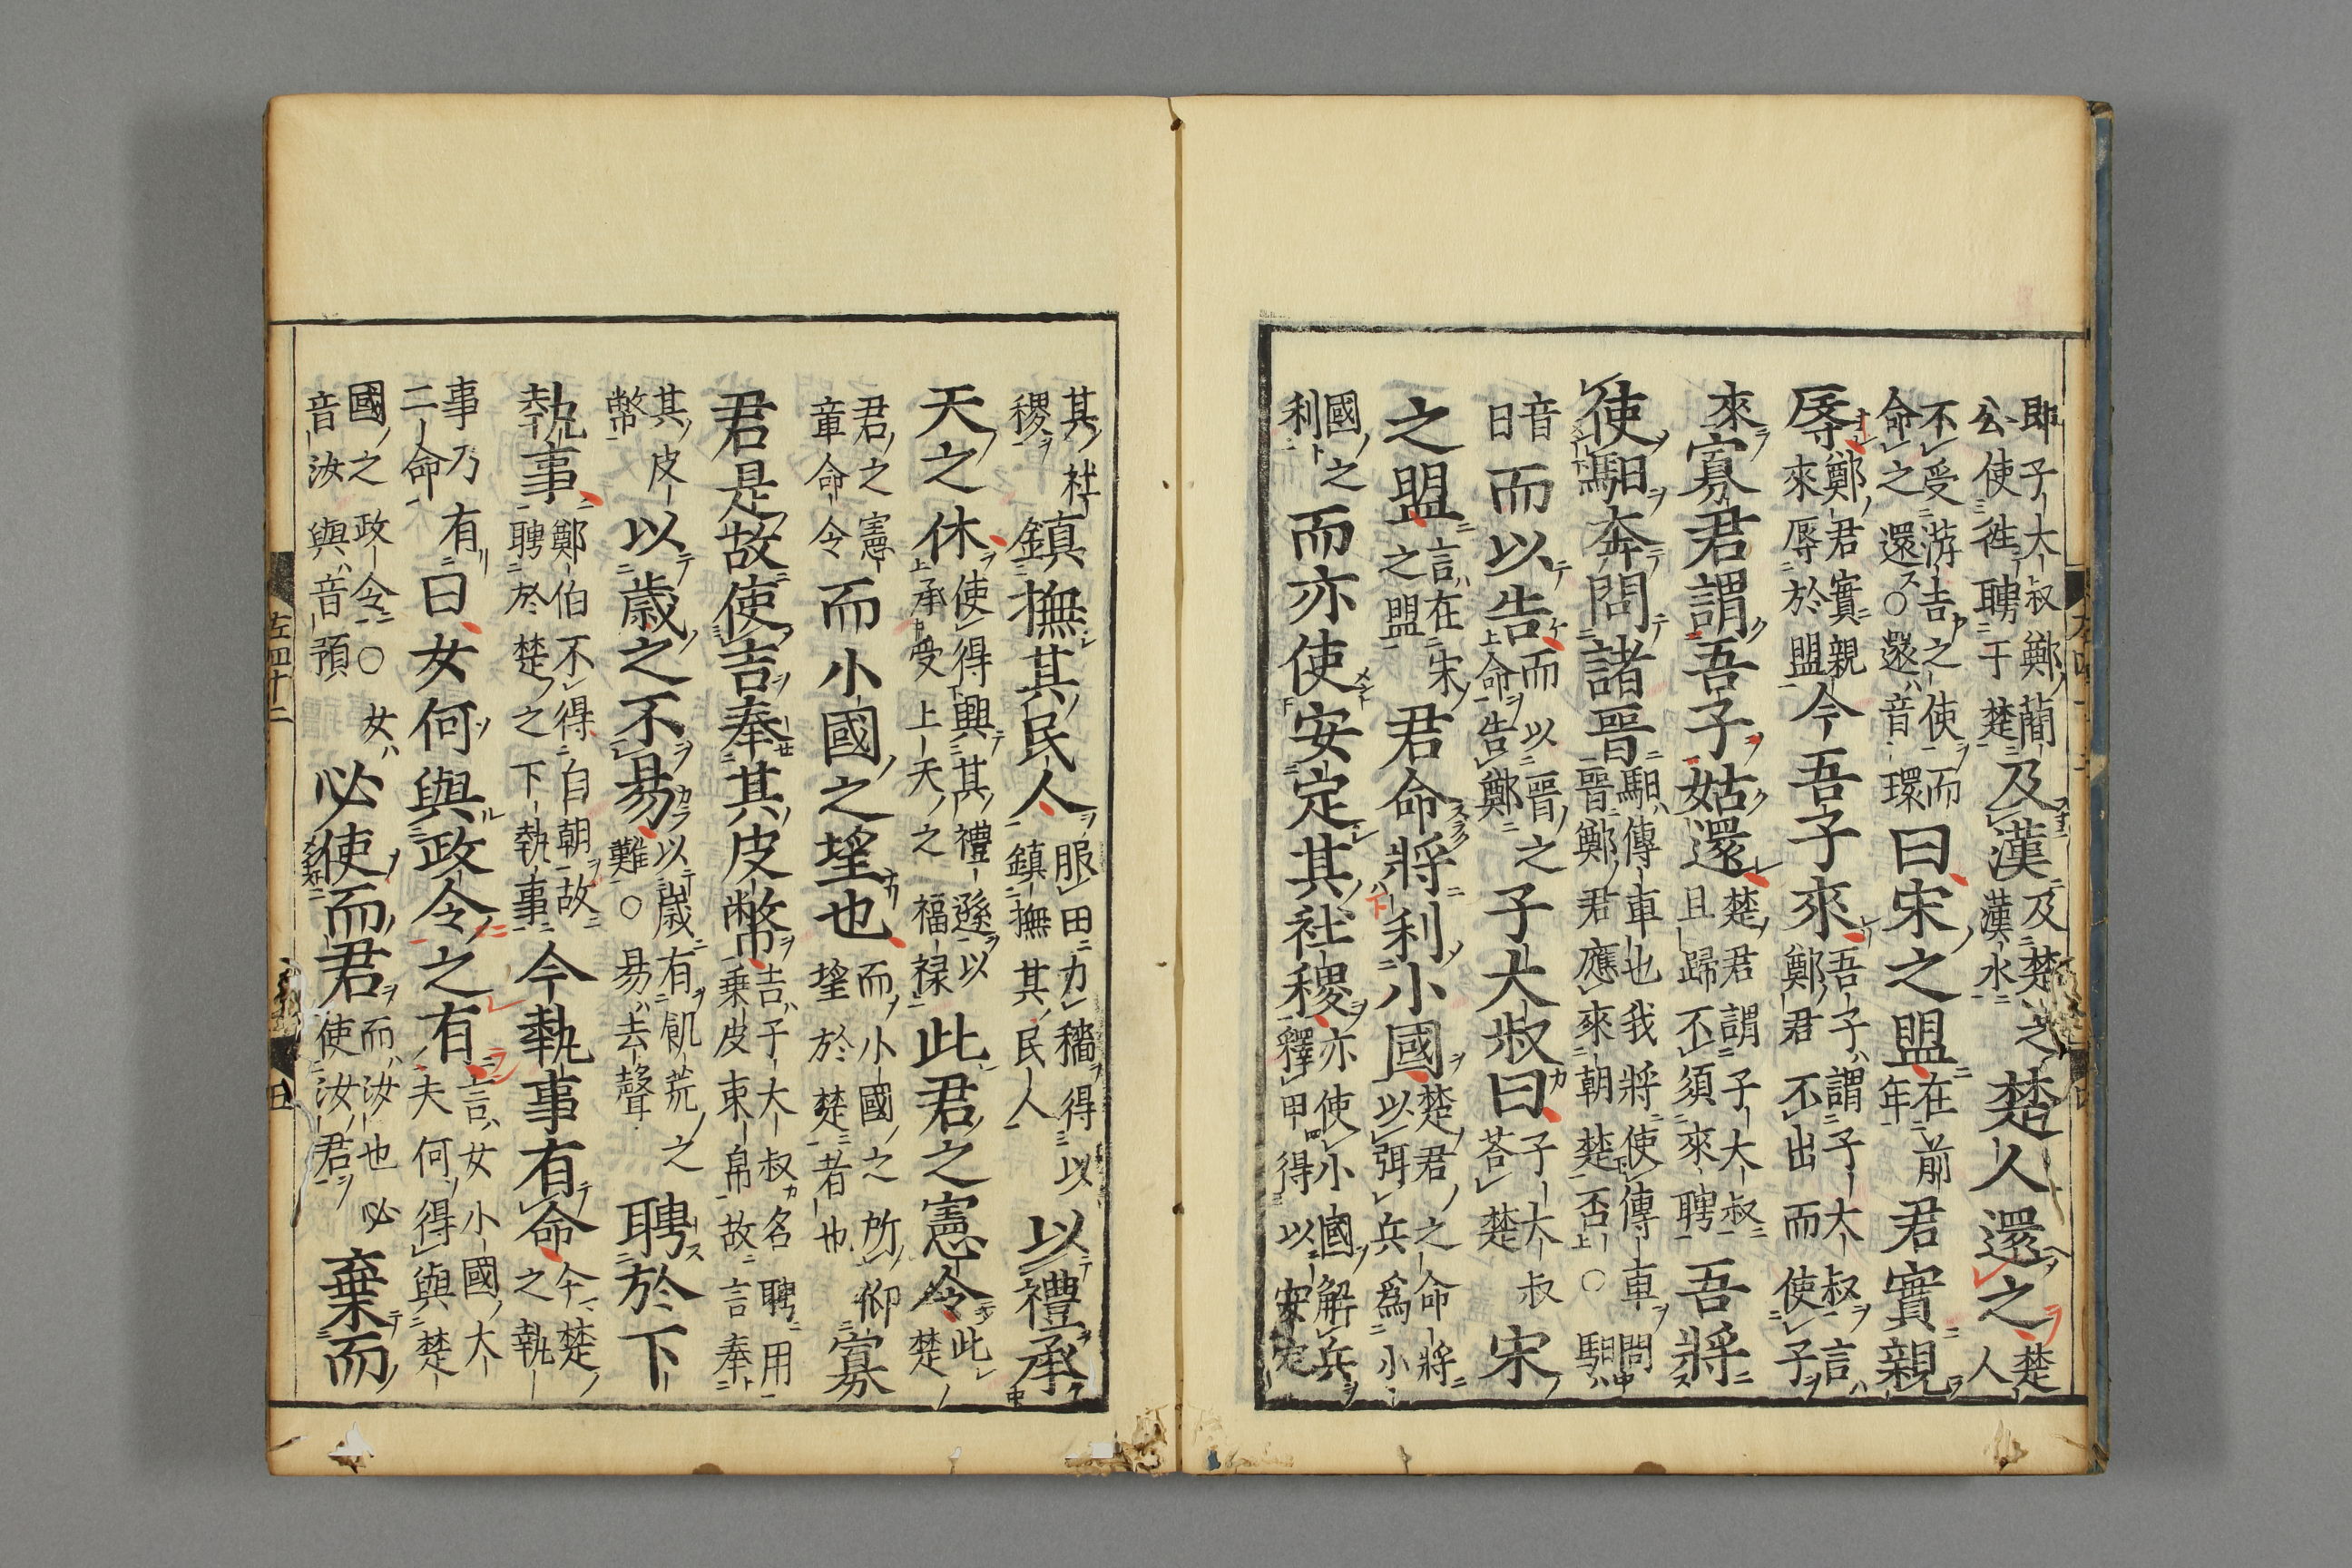 即子大叔鄭簡公使徃聘于楚及漢及楚之漢水楚人還之楚人
不受游吉之使而命之還○還音環曰宋之盟在前年君實親
辱鄭君實親來辱於盟今吾子來吾子謂子大叔言鄭君不出而使子
來寡君謂吾子姑還楚君謂子大叔且歸不須來聘吾將
使馹奔問諸晉馹傳車也我將使傳車問晉鄭君應來朝楚否○馹
音日而以告而以晉之命告鄭子大叔曰子大叔荅楚宋
之盟言在宋之盟君命將利小國楚君之命將以弭兵爲小
國之利而亦使安定其社稷亦使小國解兵釋甲得以安定
其社稷鎮撫其民人服田力穡得以鎮撫其民人以禮承
天之休使得興其禮遜以承受上天之福禄此君之憲令此楚
君之憲章命令而小國之望也而小國之所仰望於楚者也寡
君是故使吉奉其皮幣吉子大叔名聘用乗皮束帛故言奉
其皮幣以歳之不易以歳有飢荒之難○易去聲聘於下
執事鄭伯不得自朝故聘於楚之下執事今執事有命今楚之執
事乃有二命曰女何與政令之有言女小國大夫何得與楚
國之政令○女音汝與音預必使而君而汝也必使汝君棄而
左四十二